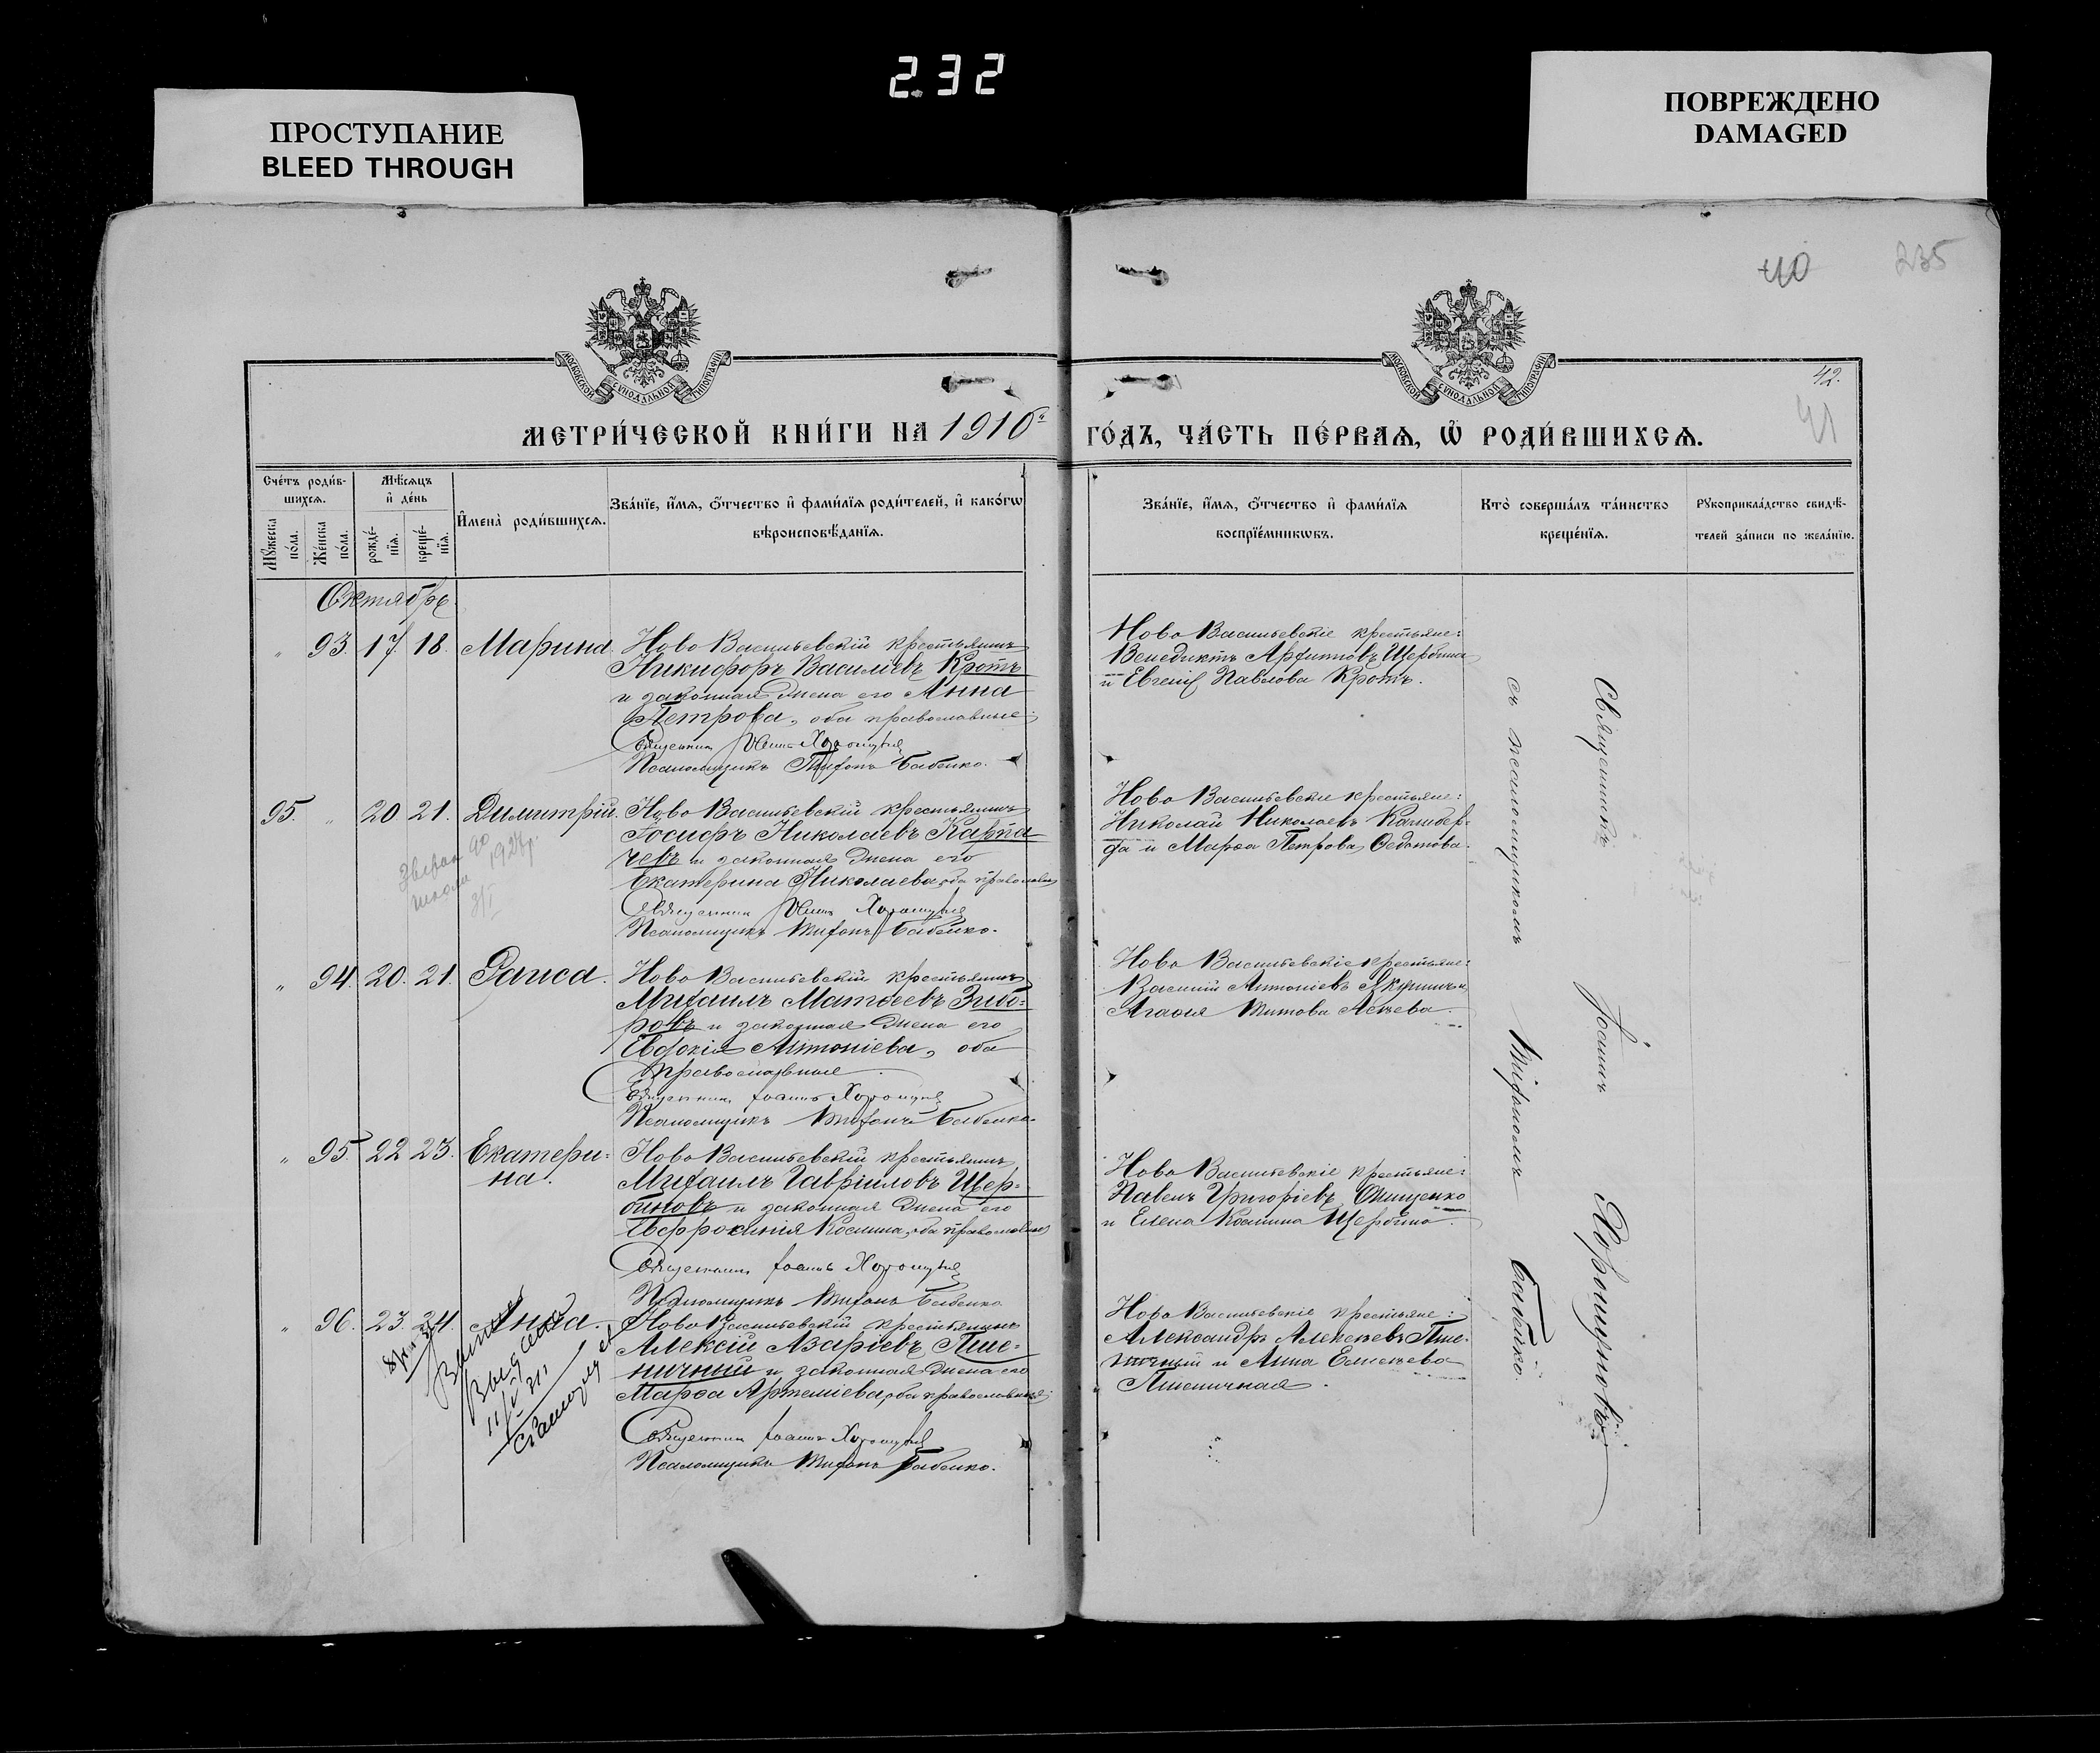 232
ПРОСТУПАНИЕ
BLEED THROUGH
ПОВРЕЖДЕНО
DAMAGED
40
235
МОСКОВСКОЙ СѴНОДАЛЬНОЙ ТИПОГРАФІИ
МОСКОВСКОЙ СѴНОДАЛЬНОЙ ТИПОГРАФІИ
42.
41
МЕТРИ́ЧЕСКОЙ КНИ́ГИ НА 1910й
ГО́ДЪ, ЧА́СТЬ ПЕ́РВАѦ, Ѿ РОДИ́ВШИХСѦ.
Сче́тъ роди́в-
шихсѧ.
Мꙋ́жеска
по́ла.
Же́нска
по́ла.
Мѣ́сѧцъ
и҆ де́нь
рожде́-
нїѧ.
креще́-
нїѧ.
И҆мена̀ роди́вшихсѧ.
Зва́нїе, и҆́мѧ, ѻ҆́тчество и҆ фами́лїѧ роди́телей, и҆ како́гѡ
вѣроисповѣ́данїѧ.
Зва́нїе, и҆́мѧ, ѻ҆́тчество и҆ фами́лїѧ
воспрїе́мникѡвъ.
Кто̀ соверша́лъ та́инство
креще́нїѧ.
Рꙋкоприкла́дство свидѣ́-
телей за́писи по жела́нїю.
Октябрь
" 93. 17. 18. Марина
Ново Васильевскій крестьянинъ
Никифоръ Василіевъ Кротъ
и законная жена его Анна
Петрова, оба православные
Священникъ
Псаломщикъ Трифонъ Бабенко.
Ново Васильевскіе крестьяне:
Венедиктъ Щербина
и Павлова Кротъ.
95. " 20 21. Димитрій
Ново Васильевскій крестьянинъ
Іосифъ Николаевъ Карпа
чевъ и законная жена его
Екатерина Николаева, оба православные
Священникъ
Псаломщикъ Трифонъ Бабенко.
1927р.
3/I
Ново Васильевскіе крестьяне:
Николай Николаевъ
да и Марѳа Петрова Ѳедотова.
" 94. 20. 21. Раиса.
Ново Васильевскій крестьянинъ
Михаилъ Матѳеевъ Зибо=
ровъ и законная жена его
Евдокія Антоніева, оба
православные
Священникъ Іоаннъ
Псаломщикъ Трифонъ Бабенко.
Ново Васильевскіе крестьяне:
Василій Антоніевъ
Агаѳія Титова
" 95. 22 23. Екатери=
на.
Ново Васильевскій крестьянинъ
Михаилъ Гавріиловъ Щер=
биновъ и законная жена его
Евфросинія Косьмина, оба православные
Священникъ Іоаннъ
Псаломщикъ Трифонъ Бабенко
Ново Васильевскіе крестьяне:
Павелъ Григоріевъ Онищенко
и Елена Косьмина Щербина.
" 96. 23. 24. Анна.
Ново Васильевскій крестьянинъ
Алексій Азаріевъ Пше=
ничный и законная жена его
Марѳа Артеміева, оба православные
Священникъ Іоаннъ
Псаломщикъ Трифонъ Бабенко.
Ново Васильевскіе крестьяне:
Александръ Алексѣевъ Пше=
ничный и Анна Елисѣева
Пшеничная.
Священникъ Іоаннъ
съ псаломщикомъ Трифономъ Бабенко.